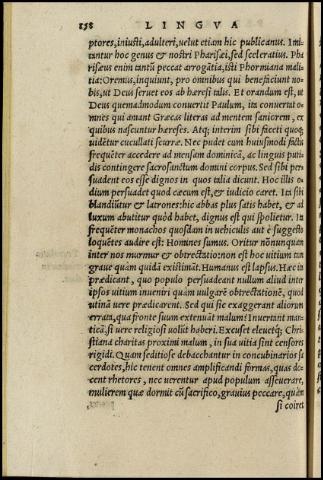 158 LINGVA
ptores, iniusti, adulteri, uelut etiam hic publicanus. Imi
tantur hoc genus & nostri Pharisæi, sed sceleratius. Pha
risæus enim tantū peccat arrogātia, isti Phormiana mali
tia: Oremus, inquiunt, pro omnibus qui beneficiunt no
bis, ut Deus seruet eos ab hæresi talis. Et orandum est, ut
Deus quemadmodum conuertit Paulum, ita conuertat o
mnes qui amant Græcas literas ad mentem saniorem, ex
quibus nascuntur hæreses. Atq; interim sibi faceti quoq;
uidētur cucullati scurræ. Nec pudet cum huiusmodi factis
frequēter accedere ad mensam dominicā, ac linguis putri
dis contingere sacrosanctum domini corpus. Sed sibi per
suadent eos esse dignos in quos talia dicunt. Hoc illis o
dium persuadet quod cæcum est, & iudicio caret. Ita sibi
blandiūtur & latrones: hic abbas plus satis habet, & ad
luxum abutitur quòd habet, dignus est qui spolietur. In
frequēter monachos quosdam in uehiculis aut è suggesto
loquētes audire est: Homines sumus. Oritur nōnunquam
inter nos murmur & obtrectatio: non est hoc uitium tam
graue quàm quidā existimāt. Humanus est lapsus. Hæc in
prædicant, quo populo persuadeant nullum aliud inter
ipsos uitium inueniri quàm uulgarē obtrectationē, quod
utinā uere prædicarent. Sed qui sic exaggerant aliorum
errata, qua fronte suum extenuāt malum? Inuertant man
ticā, si uere religiosi uolūt haberi. Excuset eleuetq; Chri
stiana charitas proximi malum, in sua uitia sint censores
rigidi. Quàm seditiose debacchantur in concubinarios sa
cerdotes, hic tenent omnes amplificandi formas, quas do
cent rhetores, nec uerentur apud populum asseuerare,
mulierem quæ dormit cū sacrifico, grauius peccare, quàm
si coiret